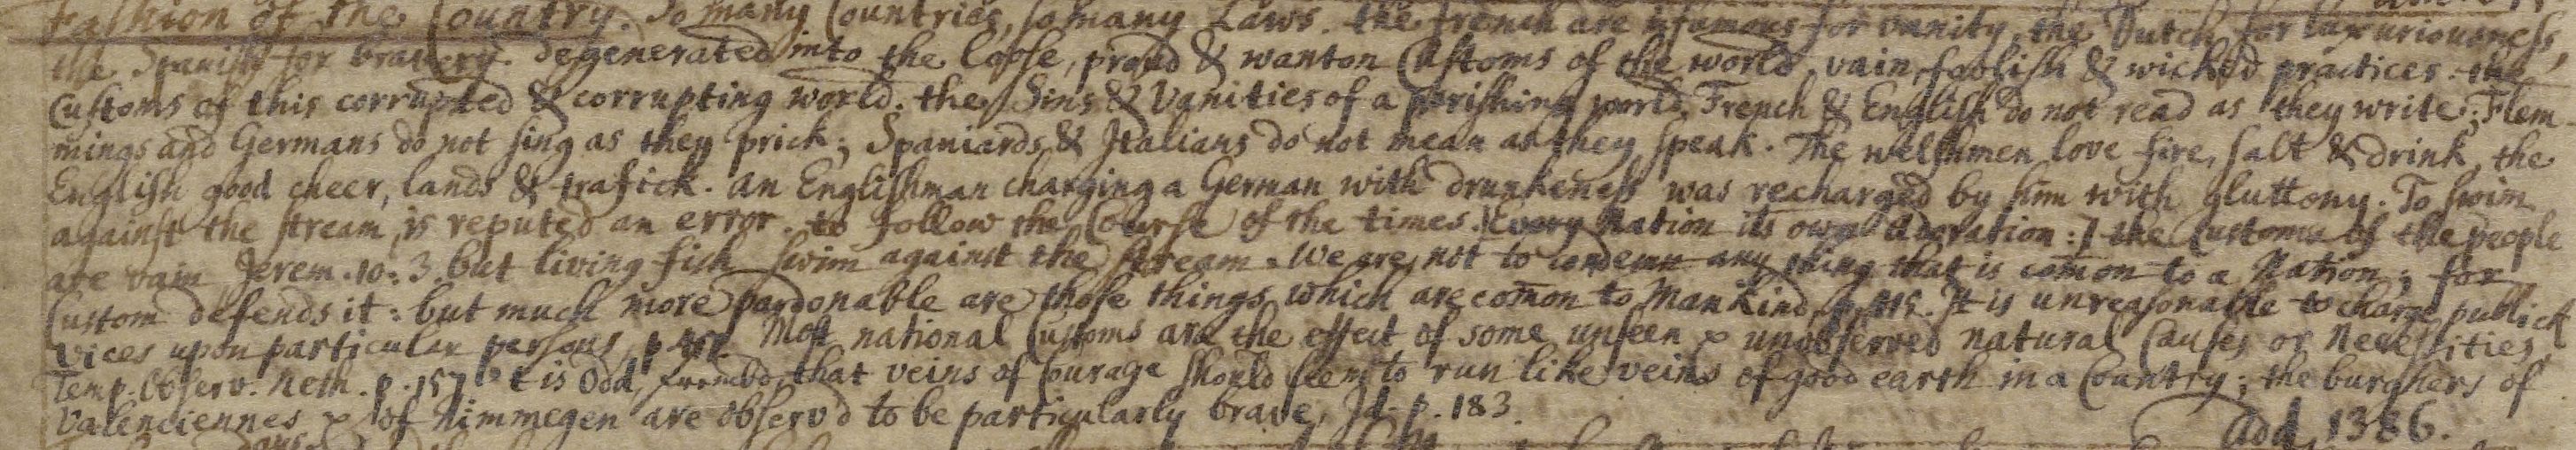 Fashion of the Country. So many Countries, so many Laws. the french are infamous for vanity, the Dutch for luxuriousness,
the Spanish for bravery. degenerated into the loose, proud & wanton Customs of the world, vain, foolish & wicked practices. the
Customs of this corrupted & corrupting world. the Sins & Vanities of a perishing world. French & English do not read as they write; Flem
mings and Germans do not sing as they prick; Spaniards & Italians do not mean as they speak. The welshmen love fire, salt & drink, the
English good cheer, lands & trafick. an Englishman charging a German with drunkeness was recharged by him with gluttony. To swim
against the stream, is reputed an error. to follow the Course of the times. Every Nation its own adoration: ] the Customs of the people
are vain Jerem. 10. 3. but living fish swim against the stream. We are not to condemn any thing that is comon to a Nation; for
Custom defends it: but much more pardonable are those things which are comon to Mankind, p. It is unreasonable to charge publick
vices upon particular persons, p. Most national Customs are the effect of some unseen & unobserved natural Causes or Necessities,
Temp: Observ: Neth. p. 157. t is Odd, that veins of Courage should seem to run like veins of good earth in a Country; the burghers of
Valenciennes & of Nimmegen are observ'd to be particularly brave, Id. p. 183.
add 1386.